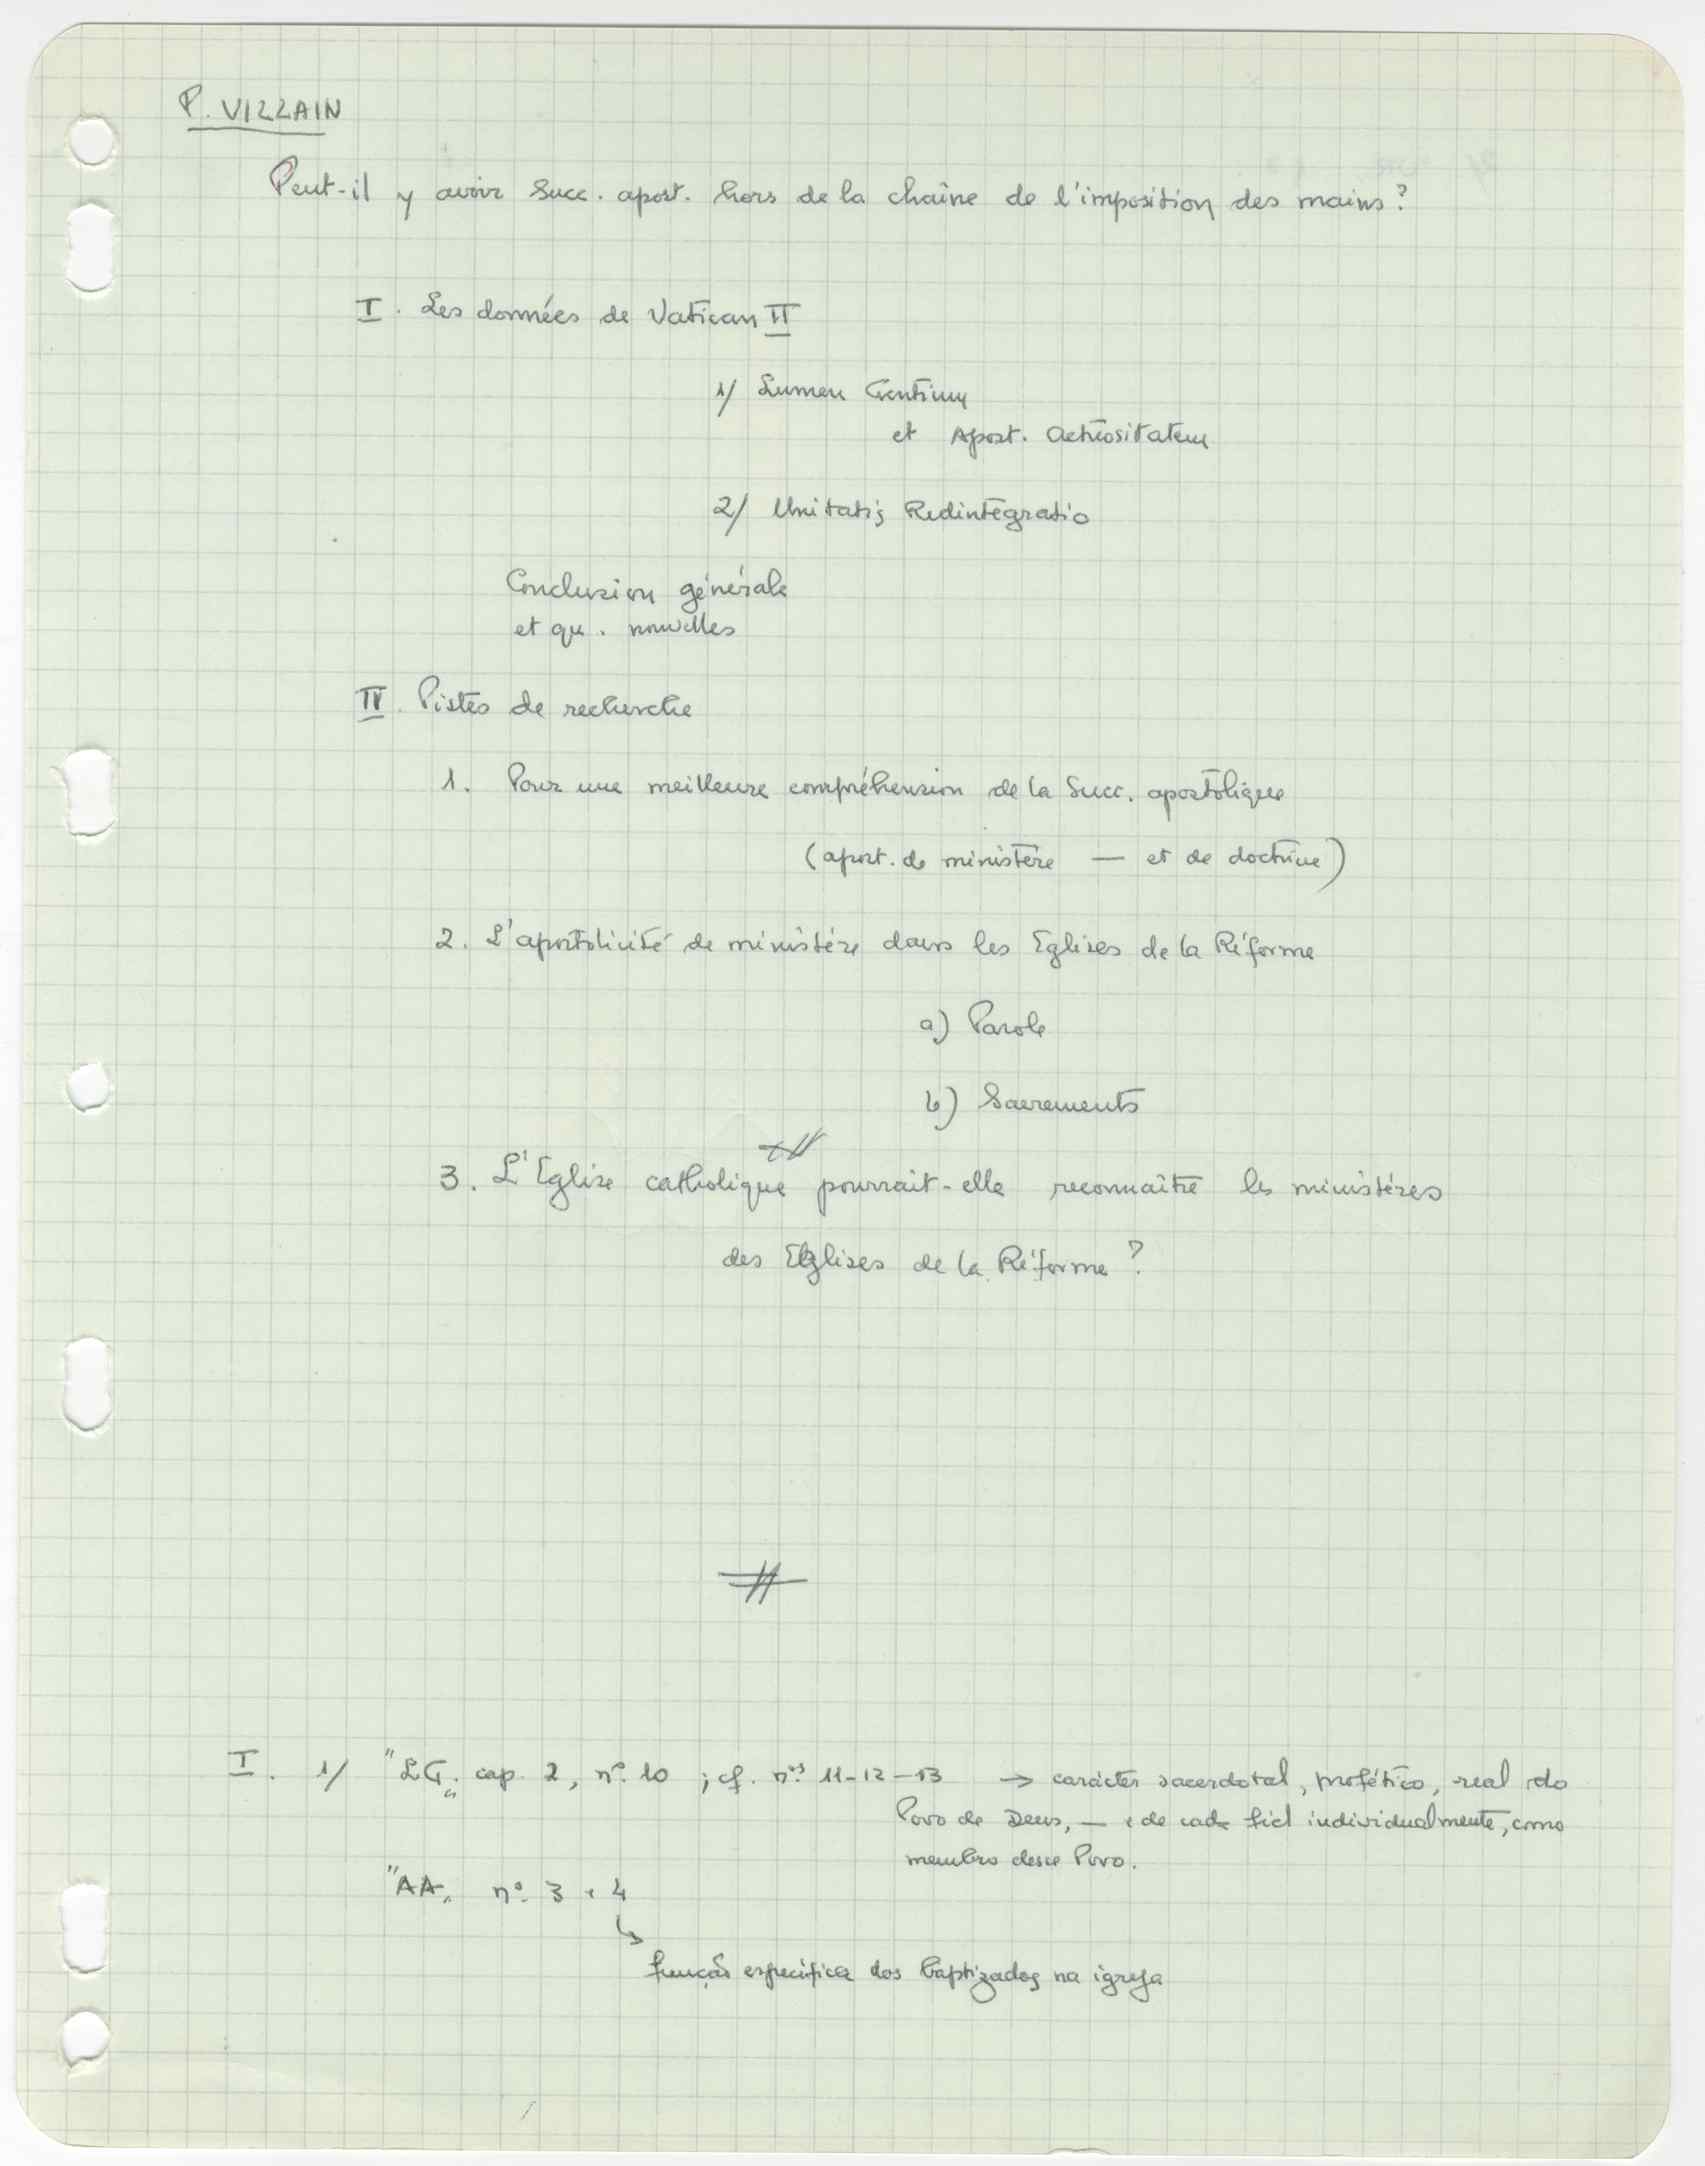 P. VILLAIN
Peut-il y avoir Succ. apost. hors de la chaîne de l'imposition des mains ?
I. Les données de Vatican II
1/ Lumen Gentium
et Apost. Actuositatem
2/ Unitatis Redintegratio
Conclusion générale
et qu. nouvelles
II. Pistes de recherche
1. Pour une meilleure compréhension de la Succ. apostolique
(apost. de ministère — et de doctrine)
2. L'apostolicité de ministère dans les Eglises de la Réforme
a) Parole
b) Sacrements
3. L'Eglise catholique pourrait-elle reconnaître les ministères
des Eglises de la Réforme ?
I. 1/ "LG" cap. 2, nº. 10 ; cf. nºs 11-12-13 → carácter sacerdotal, profético, real do
Povo de Deus, — e de cada fiel individualmente, como
membro desse Povo.
"AA" nº. 3 e 4
↳
função específica dos baptizados na igreja